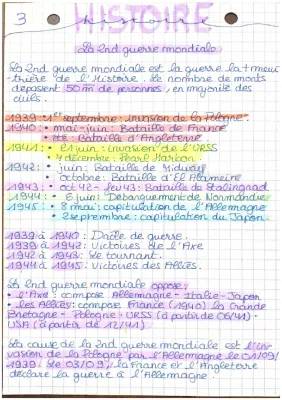 3
HISTOIRE
histoire
La 2nd guerre mondiale
La 2nd guerre mondiale est la guerre la + meur
-trière de l'Histoire. Le nombre de morts
depasient 50m de personnes, en majorité des
civils.
1939: 1er septembre: invasion de la Pologne.
1940: • mai-juin: Bataille de France
• été: Bataille d'Angleterre
1941: • 21 juin: invasion de l'URSS
7 décembre: Pearl Harbon
1942: • juin: Bataille de Midway
• octobre: Bataille d'El Alameine
1943: • oct 42 - fev 43: Bataille de Stalingrad
1944: • 6 juin: Debarquement de Normandie
1945: 8 mai: capitulation de l'Allemagne
2 septembre: capitulation du Japon
1939 à 1940: Drôle de guerre.
1939 à 1942: Victoires de l'Axe
1942 à 1943: Le tournant.
1944 à 1945: Victoires des Alliés.
La 2nd guerre mondiale oppose:
• l'Axe: compose Allemagne - Italie - Japon
• les Alliés: compose France (1940) la Grande
Bretagne - Pologne - URSS (à partir de 06/41) -
USA (à partir de 12/41)
La cause de la 2nd guerre mondiale est l'in
vasion de la Pologne par l'Allemagne le 01/09/
1939. Le 03/09, la France et l'Angleterre
déclare la guerre à l'Allemagne.